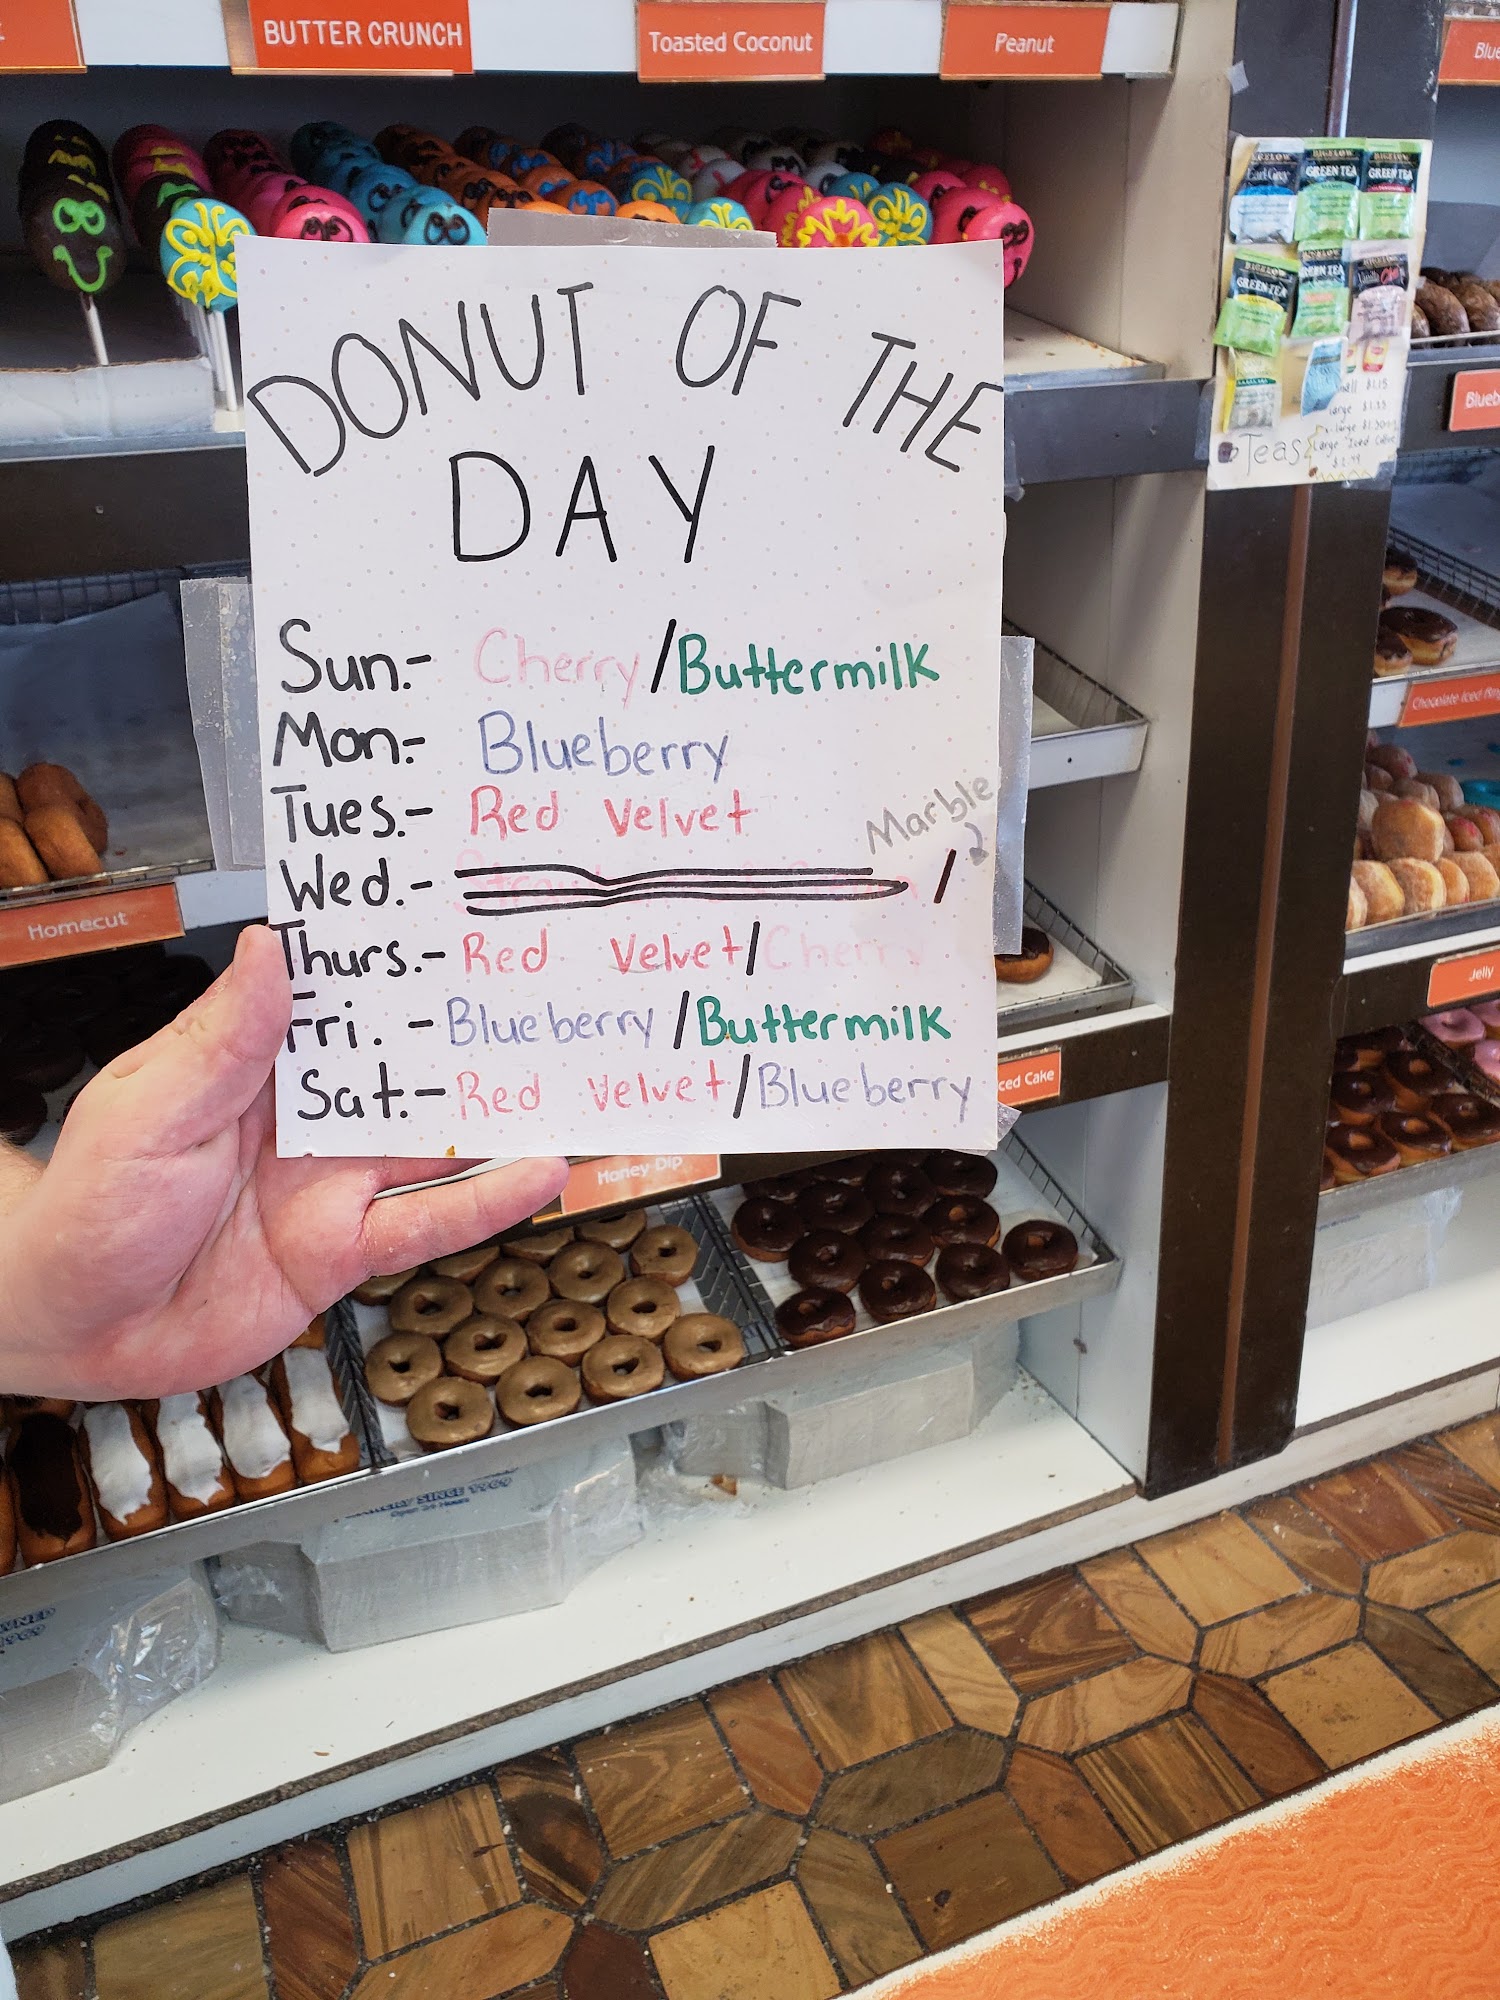 BUTTER CRUNCH
Toasted Coconut
Peanut
DONUT OF THE
DAY
Sun.- Cherry/Buttermilk
Mon.- Blueberry
Tues.- Red Velvet
Marble
Wed.- / 2
Thurs.- Red Velvet/Cherry
Fri. - Blueberry/Buttermilk
Sat.- Red Velvet/Blueberry
BIGELOW
Earl Grey
BIGELOW
GREEN TEA
BIGELOW
GREEN TEA
BIGELOW
GREEN TEA
GREEN TEA
Vanilla Chai
$1.15
large $1.35
Large Iced Coffee
Teas
Homecut
Honey Dip
Iced Cake
Chocolate Iced Ring
Jelly
SINCE 1969
Open 24 Hours
1969